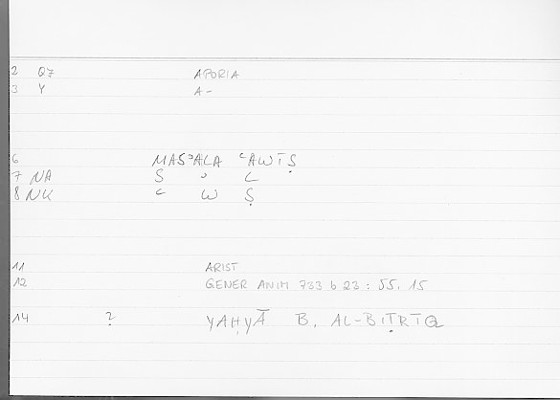 2 QZ APORIA
3 Y A-
6 MASʾALA ʿAWĪṢ
7 NA S ʾ L
8 NK ʿ W Ṣ
11 ARIST
12 GENER ANIM 733 b 23 : 55. 15
14 ? YAḤYĀ B. AL-BIṬRĪQ